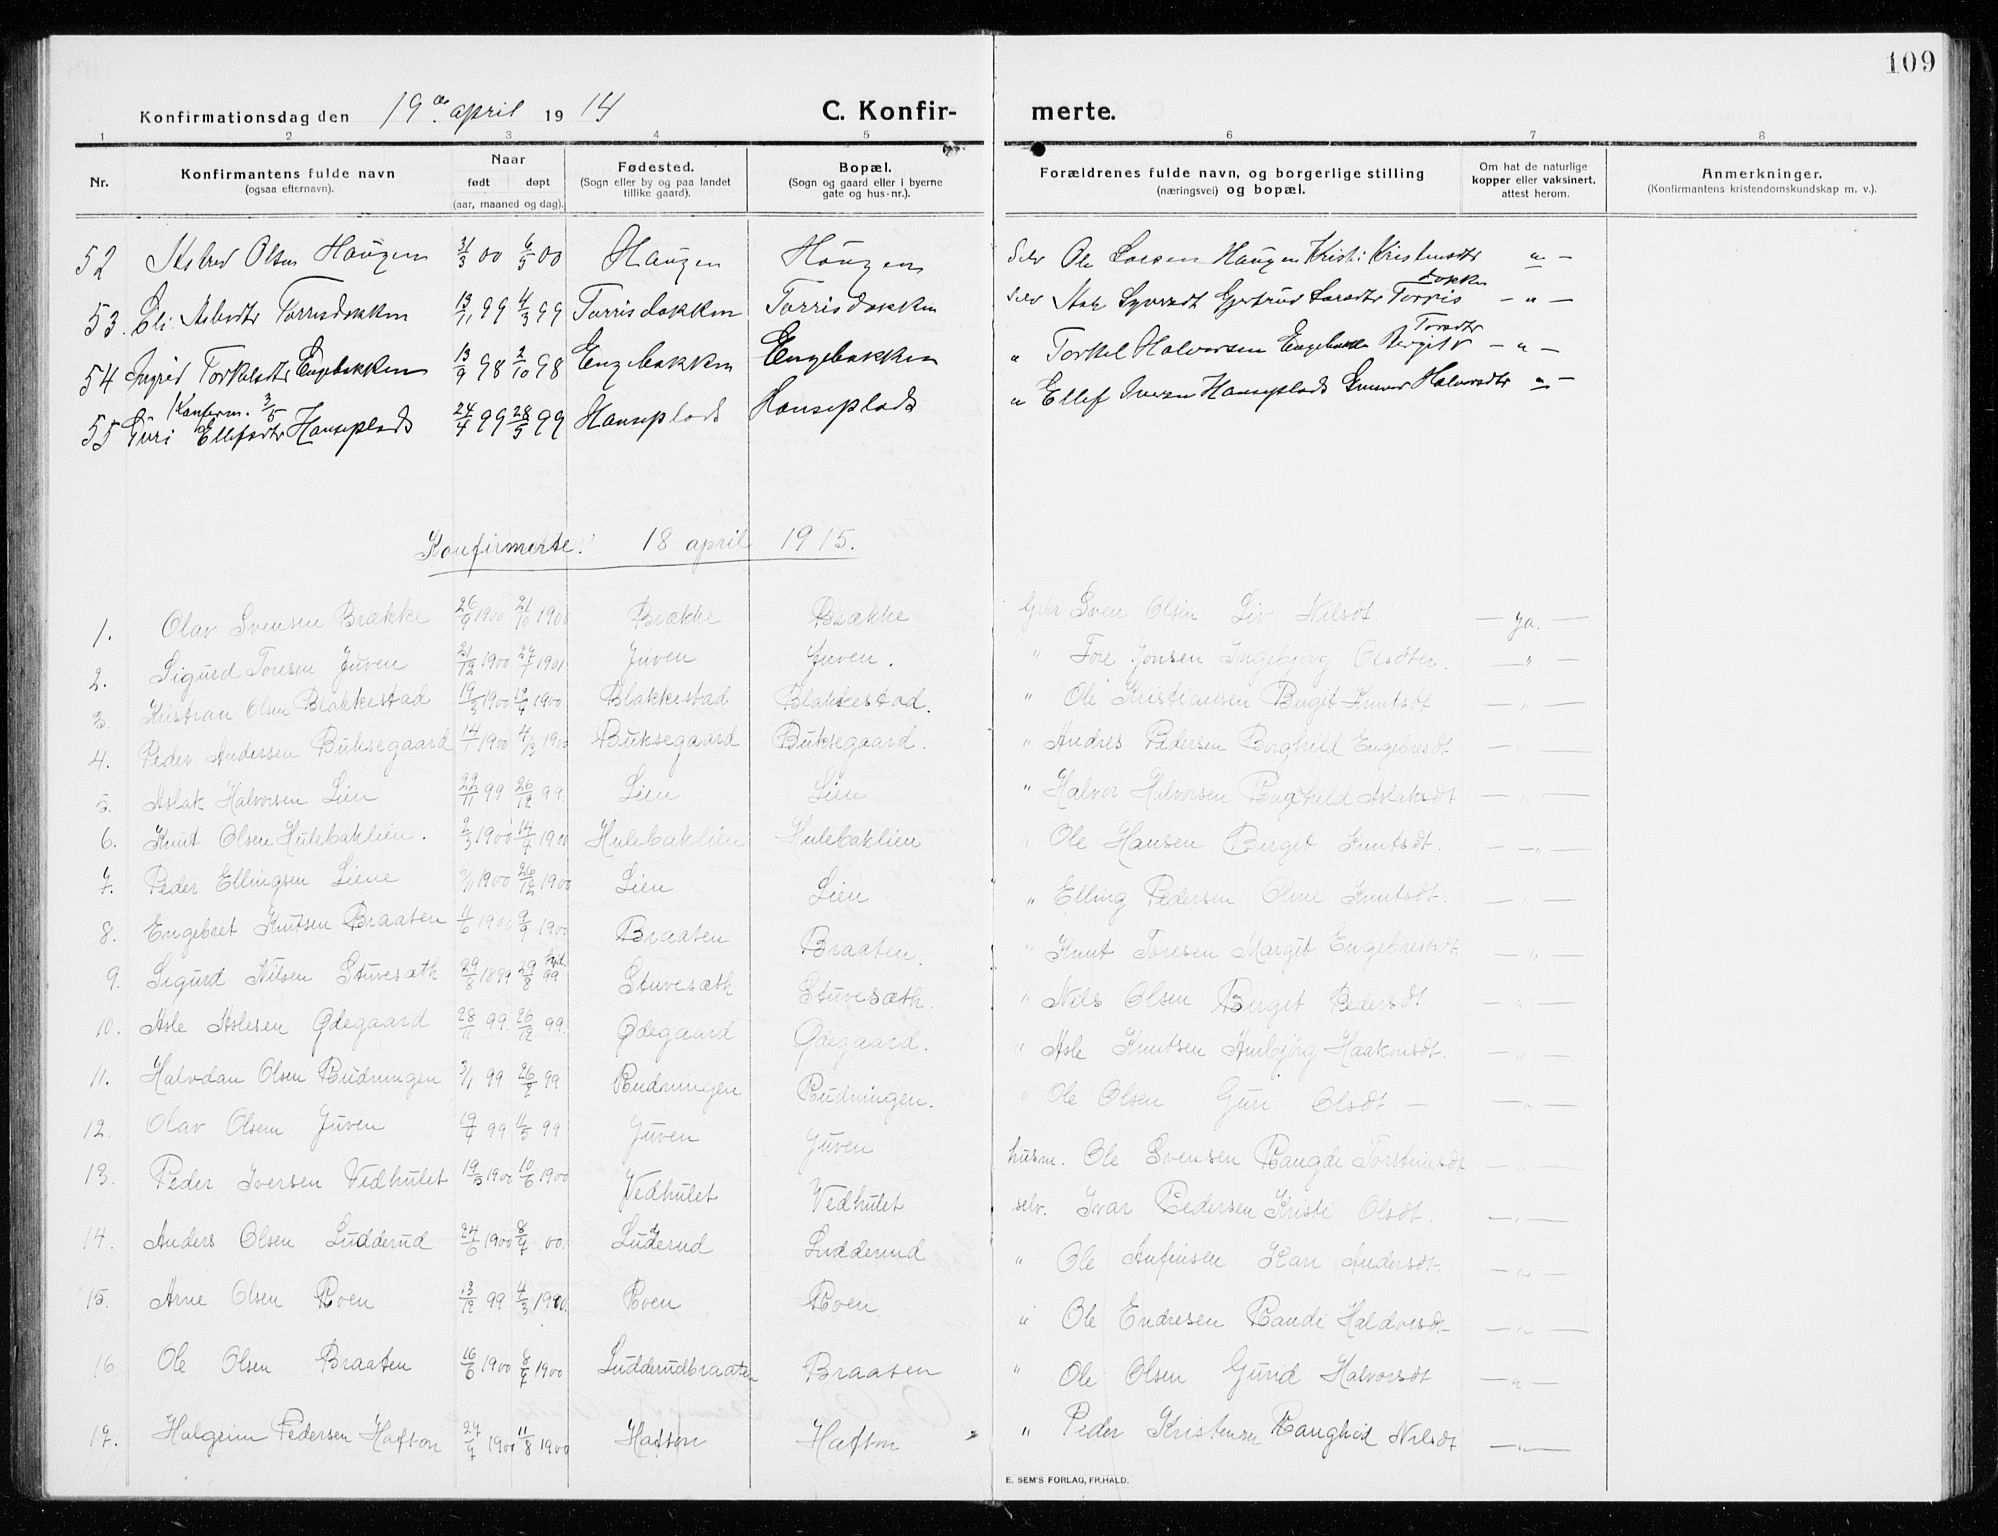 109
Konfirmationsdag den 19de april 1914 C. Konfir- merte.
1 2 3 4 5 6 7 8
Nr. Konfirmantens fulde navn (ogsaa efternavn). Naar født døpt (aar, maaned og dag). Fødested. (Sogn eller by og paa landet tillike gaard). Bopæl. (Sogn og gaard eller i byerne gate og hus-nr.). Forældrenes fulde navn, og borgerlige stilling (næringsvei) og bopæl. Om hat de naturlige kopper eller vaksinert, attest herom. Anmerkninger. (Konfirmantens kristendomskundskap m. v.).
52 Olsen Haugen 31/3 00 6/5 00 Haugen Haugen Selv Ole Haugen Kristi " —
53. Torrisdokken 13/11 99 4/3 99 Torrisdokken Torrisdokken Selv Gjertrud Torris dokken — " —
54 Ingrid Torkelsdtr Engebakken 13/9 98 2/10 98 Engebakken Engebakken " Torkel Halvorsen Bergit Toresdtr — " —
(Konferm. 3/5
55 Guri Ellefsdtr Hanseplads 24/4 99 28/5 99 Hanseplads Hanseplads " Ellef Iversen Hanseplads Gunvor Halvorsdtr " —
Konfirmerte. 18 april 1915.
1. Olav Svensen Brække 26/9 1900 21/10 1900 Brække Brække Grbr Sven Olsen Liv Nilsdt. — ja. —
2. Sigurd Toresen Juven 21/12 1900 27/1 1901. Juven Juven. " Tore Jonsen Ingebjorg Olsdter. — " —
3. Kristian Olsen Blakkestad 19/3 1900 1900 Blakkestad Blakkestad. " Ole Kristiansen Birgit Knutsdt. — " —
4. Peder Andersen Buksegaard 14/1 1900 4/3 1900 Buksegaard Buksegaard. " Andres Pedersen Borghild Engebresdt. — " —
5. Aslak Halvorsen Lien 22/11 99 26/12 99. Lien Lien " Halvor Halvorsen Ragnhild Aslaksdt — " —
6. Knut Olsen Hulebaklien. 2/3 1900 14/4 1900 Hulebaklien Hulebaklien " Ole Hansen Birget Knutsdt. — " —
7. Peder Ellingsen Liene 1900 26/12 1900 Lien Lien " Elling Pedersen Oline Knutsdt. — " —
8. Engebret Knutsen Braaten 1900 1900 Braaten Braaten. " Knut Toresen Margit Engebretsdt. — " —
9. Sigurd Nilsen Stuvesæth 29/8 1899 29/8 99 Stuvesæth Stuvesæth. " Nils Olsen Birget Pedersdt. — " —
10. Asle Aslesen Ødegaard 28/11 99. 26/12 99. Ødegaard Ødegaard. " Asle Knutsen Ambjørg Haakonsdt. — " —
11. Halvdan Olsen Rudningen 3/1 99 26/2 99 Rudningen Rudningen. " Ole Olsen Guri Olsdt — — " —
12. Olav Olsen Juven 19/4 99. 11/5 99 Juven Juven husm. Ole Svensen Rangdi Torsteinsdt — " —
13. Peder Iversen Vedhulet 19/5 1900 10/6 1900 Vedhulet Vedhulet selv. Ivar Pedersen Kristi Olsdt. — " —
14. Anders Olsen Ludderud 24/6 1900 8/7 00. Ludderud Ludderud " Ole Anfinsen Kari Andersdt. — " —
15. Arne Olsen Roen 13/12 99 4/3 1900. Roen Roen " Ole Endresen Randi Haldvesdt — " —
16 Ole Olsen Braaten 16/6 1900 8/7 1900 Ludderudbraaten Braaten " Ole Olsen Gurid Halvorsdt — " —
17. Halgrim Pedersen Hafton 27/7 1900 11/8 1900 Hafton Hafton " Peder Kristensen Ranghild Nilsdt — " —
E. SEM'S FORLAG, FR.HALD.